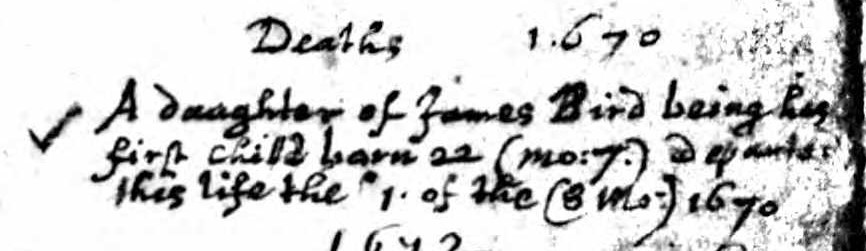 Deaths 1.670
A daughter of James Bird being his
first child born 22 (mo:7.) departe:
this life the 1. of the (8 mo:) 1670